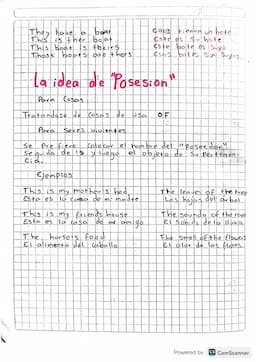 They have a boat Ellos tienen un bote
This is their boat Este es su bote
This boat is theirs Este bote es suyo
Those boats are theirs Esos botes son suyos
La idea de "Posesion"
Para Cosas
Tratandose de Cosas se usa OF
Para Seres vivientes
Se Prefiere Colocar el nombre del "Poseedor"
Seguida de 's y luego el objeto de su Pertenen-
cia.
Ejemplos
This is my mother's bed The leaves of the tree
Esta es la cama de mi madre Las hojas del arbol
This is my friends house The sound of the rain
Esta es la casa de mi amigo El sonido de la lluvia
The horse's food The smell of the flowers
El alimento del caballo El olor de las flores
Powered by CS CamScanner